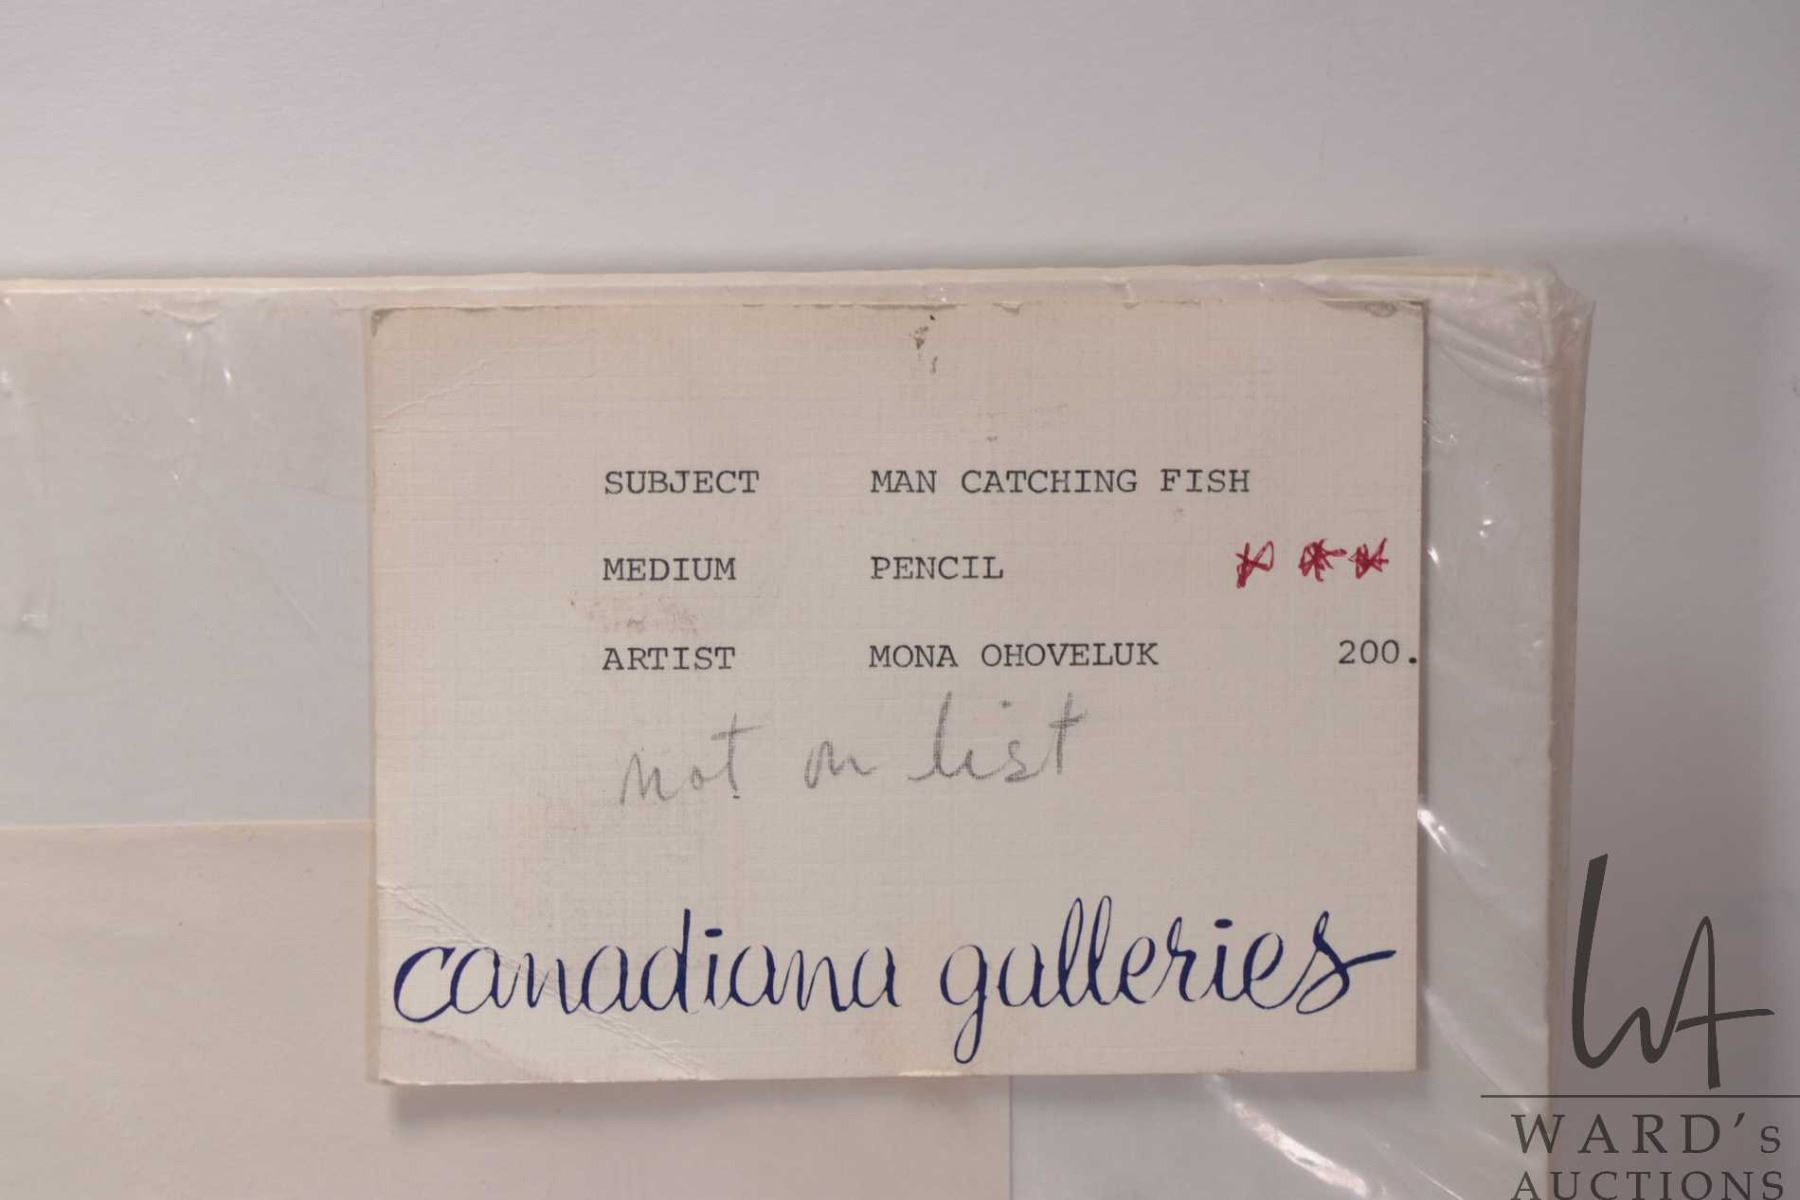 SUBJECT MAN CATCHING FISH
MEDIUM PENCIL ***
ARTIST MONA OHOVELUK 200.
not on list
canadiana galleries
WA
WARD's
AUCTIONS